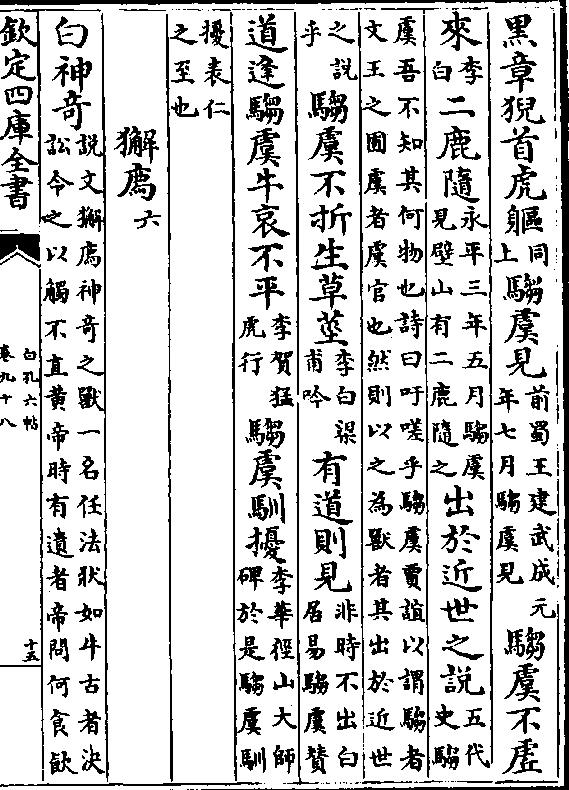 黒章猊首虎軀同上騶虞見前蜀王建武成元年七月騶虞見騶虞不虚
來李白二鹿隨永平三年五月騶虞見壁山有二鹿隨之出於近世之説五代史騶
虞吾不知其何物也詩曰吁嗟乎騶虞賈誼以謂騶者
文王之囿虞者虞官也然則以之為獸者其出於近世
之説乎騶虞不折生草莖李白梁甫吟有道則見非時不出白居易騶虞賛
道逢騶虞牛哀不平李賀猛虎行騶虞馴擾李華徑山大師碑於是騶虞馴
擾表仁之至也
獬廌六
白神奇説文獬廌神奇之獸一名任法狀如牛古者決訟令之以觸不直黄帝時有遺者帝問何食飲
欽定四庫全書
白孔六帖
卷九十八
十五